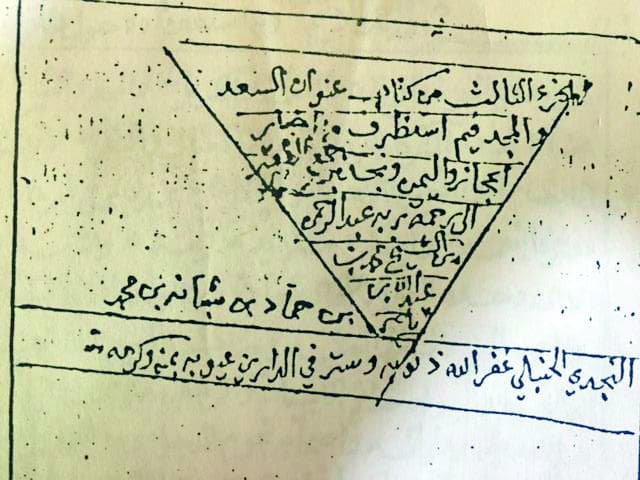 الجزء الثالث من كتاب عنوان السعد
والمجد فيما استظرف من اخبار
الحجاز واليمن ونجد
عبد الرحمن
بن الشيخ محمد بن
عبد الله بن
ناصر
بن حمادي بن شبانه بن محمد
النجدي الحنبلي غفر الله ذنوبه وستر في الدارين عيوبه بمنه وكرمه